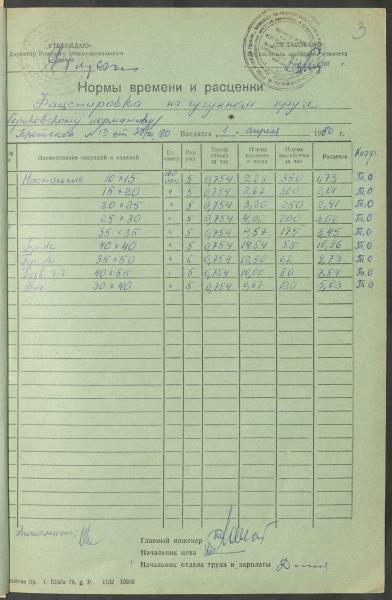 3
УТВЕРЖДАЮ:
СОГЛАСОВАНО
Директор Рижского стекло-зеркального
завода
197 г.
Нормы времени и расценки
Фацетировка на чугунном круге
Горьковскому нормативу/
Протокол № 13 от 80 Вводятся 1 апреля 1980 г.
Наименование операций и изделий
Ед. измер.
Раз-ряд
Тариф. ставка за час.
Норма времени в часах
Норма выработки за час.
Расценка
Коэф.
Настольные 10×15 100 5 0,754 2,29 350 1,73 Т.О
15×20 " 5 0,754 2,67 300 2,01 Т.О
20×25 " 5 0,754 3,20 250 2,41 Т.О
25×30 " 5 0,754 4,00 200 3,02 Т.О
35×35 " 5 0,754 4,57 175 3,45 Т.О
40×40 " 5 0,754 14,54 55 10,96 Т.О
35×50 " 5 0,754 12,90 62 9,73 Т.О
40×55 " 5 0,754 10,00 80 7,54 Т.О
30×40 " 5 0,754 6,67 120 5,03 Т.О
Экономист:
Главный инженер
Начальник цеха
Начальник отдела труда и зарплаты
1132 10000